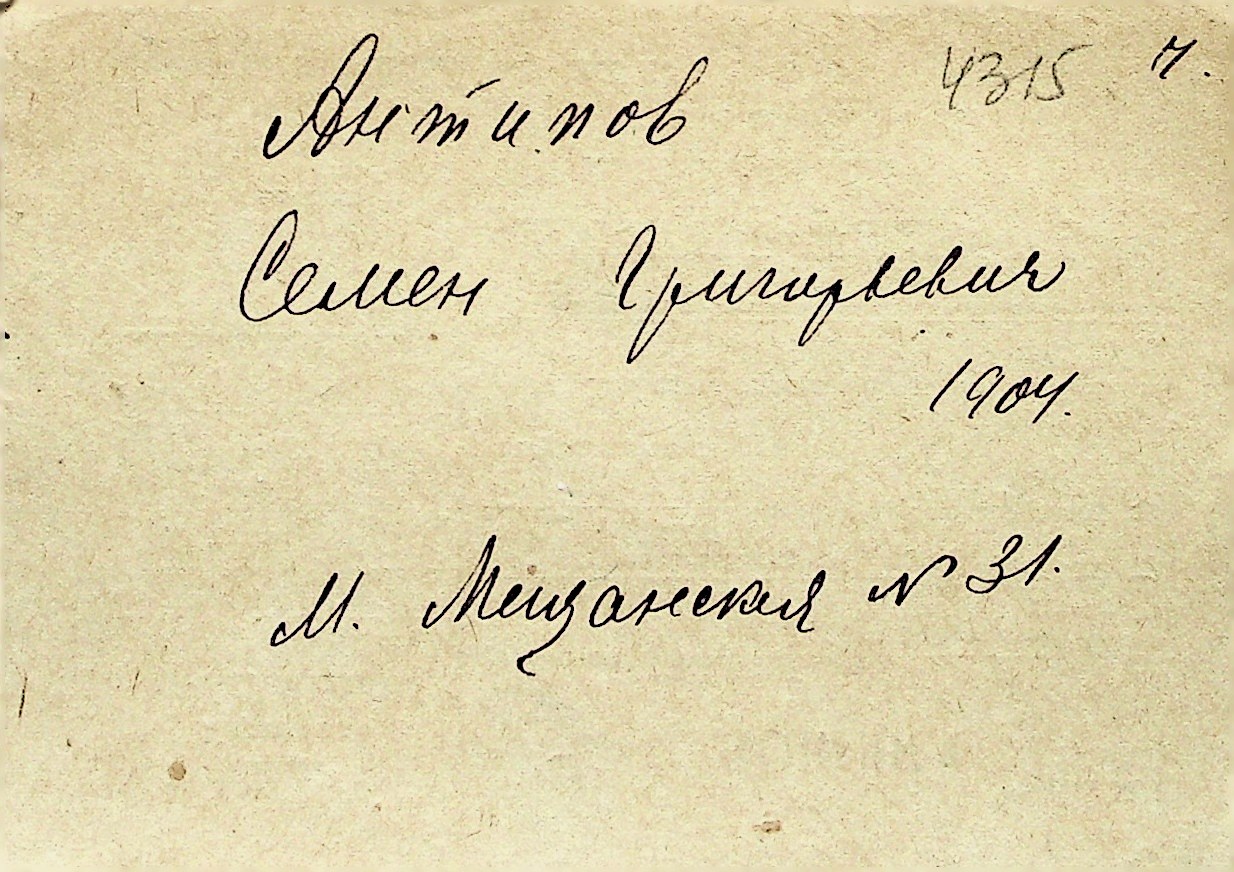 4315 ч.
Антипов
Семен Григорьевич
1904.
М. Мещанская № 31.